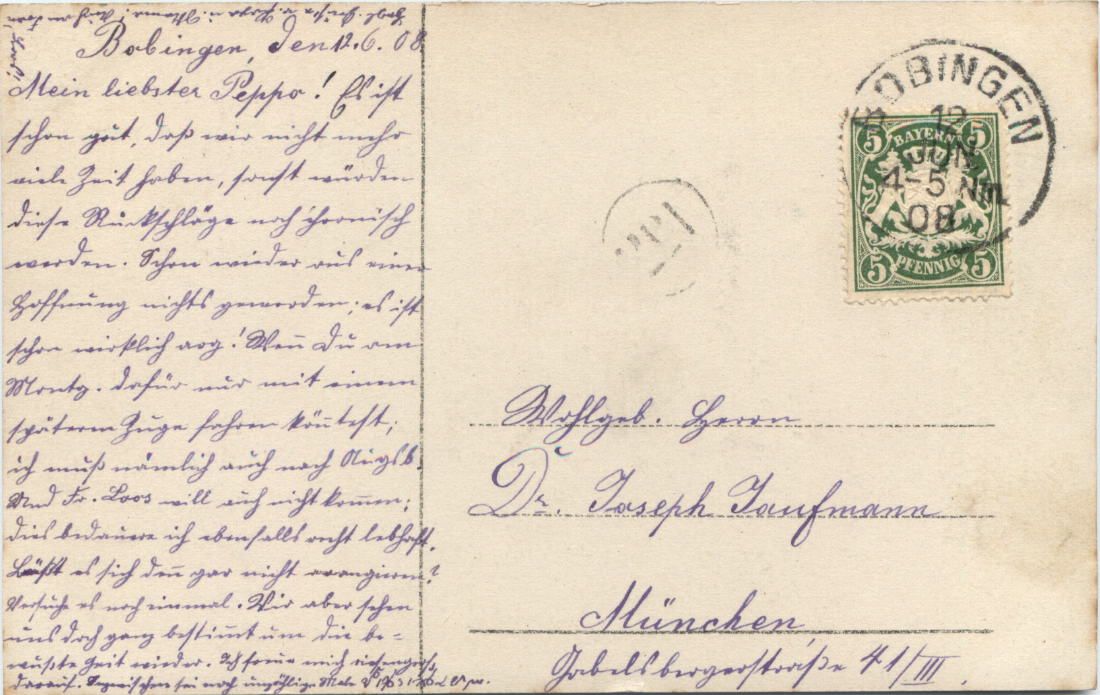 Bobingen, den 12.6.08
Mein liebster Peppo! Es ist
schon gut, daß wir nicht mehr
viele Zeit haben, sonst würden
diese Rückschläge noch chronisch
werden. Schon wieder aus einer
Hoffnung nichts geworden; es ist
schon wirklich arg! Wenn Du am
Montg. dafür nur mit einem
späterem Zuge fahren könntest;
ich muß nämlich auch nach Augsb.
Und Fr. Loos will auch nicht kommen;
dies bedauere ich ebenfalls recht lebhaft.
Läßt es sich denn gar nicht arangieren?
Versuche es noch einmal. Wir aber sehen
uns doch ganz bestimmt um die be-
wußte Zeit wieder. Ich freue mich riesengroß
darauf. Inzwischen sei noch unzählige Male
BOBINGEN
12
JUN.
4-5 Nm.
08
BAYERN
5 5
5 5
PFENNIG
Wohlgeb. Herrn
Dr. Joseph Kaufmann
München
Gabelsbergerstraße 41/III